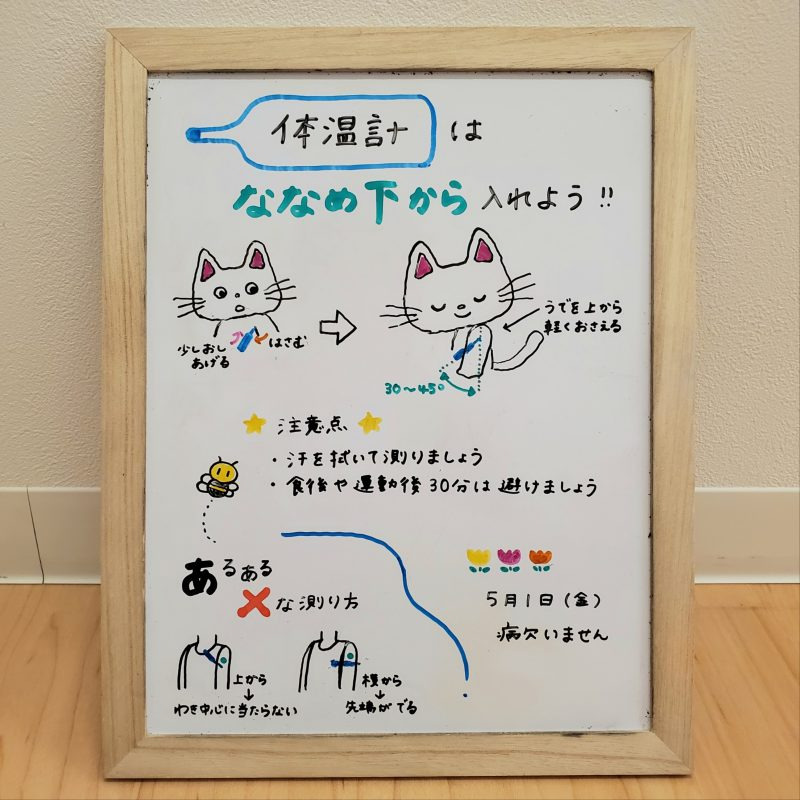 体温計は
ななめ下から入れよう!!
少しおし
あげる
はさむ
うでを上から
軽くおさえる
30〜45°
注意点
・汗を拭いて測りましょう
・食後や運動後30分は避けましょう
あるある
×な測り方
上から
↓
わき中心に当たらない
横から
↓
先端がでる
5月1日(金)
病欠いません